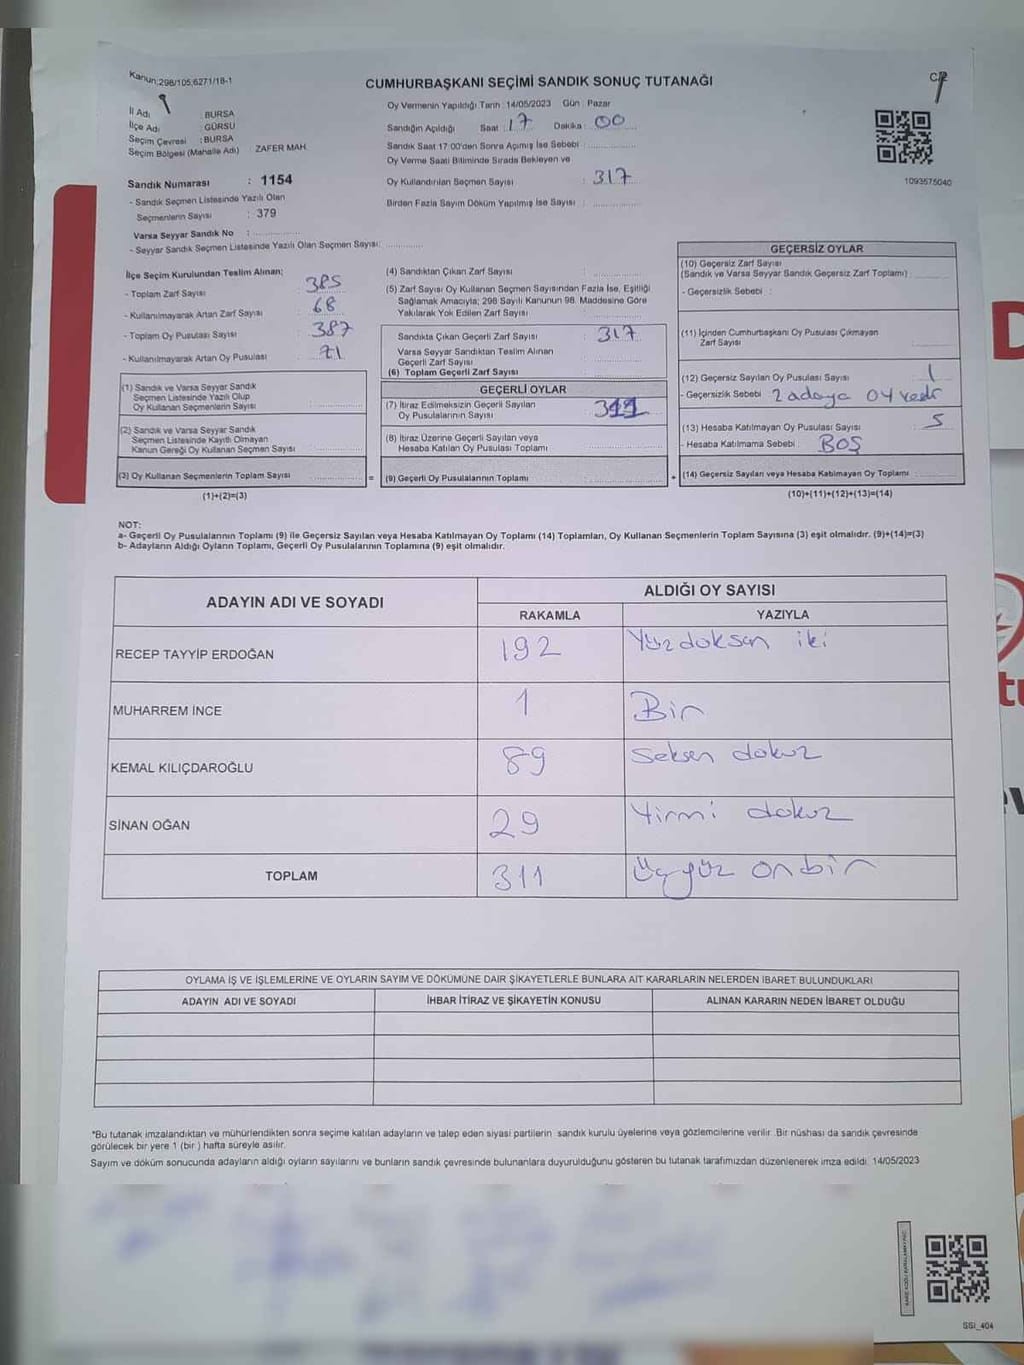 Kanun:298/105,6271/18-1
CUMHURBAŞKANI SEÇİMİ SANDIK SONUÇ TUTANAĞI
İl Adı : BURSA
İlçe Adı : GÜRSU
Seçim Çevresi : BURSA
Seçim Bölgesi (Mahalle Adı) ZAFER MAH.
Sandık Numarası : 1154
- Sandık Seçmen Listesinde Yazılı Olan
Seçmenlerin Sayısı : 379
Varsa Seyyar Sandık No :
- Seyyar Sandık Seçmen Listesinde Yazılı Olan Seçmen Sayısı:
Oy Vermenin Yapıldığı Tarih : 14/05/2023 Gün : Pazar
Sandığın Açıldığı Saat : 17 Dakika : 00
Sandık Saat 17:00'den Sonra Açımış İse Sebebi :
Oy Verme Saati Bitiminde Sırada Bekleyen ve
Oy Kullandırılan Seçmen Sayısı : 317
Birden Fazla Sayım Döküm Yapılmış İse Sayısı :
1093575040
İlçe Seçim Kurulundan Teslim Alınan;
- Toplam Zarf Sayısı : 385
- Kullanılmayarak Artan Zarf Sayısı : 68
- Toplam Oy Pusulası Sayısı : 387
- Kullanılmayarak Artan Oy Pusulası : 71
(1) Sandık ve Varsa Seyyar Sandık
Seçmen Listesinde Yazılı Olup
Oy Kullanan Seçmenlerin Sayısı
(2) Sandık ve Varsa Seyyar Sandık
Seçmen Listesinde Kayıtlı Olmayan
Kanun Gereği Oy Kullanan Seçmen Sayısı
(3) Oy Kullanan Seçmenlerin Toplam Sayısı =
(1)+(2)=(3)
(4) Sandıktan Çıkan Zarf Sayısı :
(5) Zarf Sayısı Oy Kullanan Seçmen Sayısından Fazla İse, Eşitliği
Sağlamak Amacıyla; 298 Sayılı Kanunun 98. Maddesine Göre
Yakılarak Yok Edilen Zarf Sayısı :
Sandıkta Çıkan Geçerli Zarf Sayısı : 317
Varsa Seyyar Sandıktan Teslim Alınan
Geçerli Zarf Sayısı
(6) Toplam Geçerli Zarf Sayısı
GEÇERLİ OYLAR
(7) İtiraz Edilmeksizin Geçerli Sayılan
Oy Pusulalarının Sayısı : 311
(8) İtiraz Üzerine Geçerli Sayılan veya
Hesaba Katılan Oy Pusulası Toplamı
(9) Geçerli Oy Pusulalarının Toplamı +
GEÇERSİZ OYLAR
(10) Geçersiz Zarf Sayısı
(Sandık ve Varsa Seyyar Sandık Geçersiz Zarf Toplamı)
- Geçersizlik Sebebi :
(11) İçinden Cumhurbaşkanı Oy Pusulası Çıkmayan
Zarf Sayısı
(12) Geçersiz Sayılan Oy Pusulası Sayısı : 1
- Geçersizlik Sebebi 2 adaya oy verdi
(13) Hesaba Katılmayan Oy Pusulası Sayısı : 5
- Hesaba Katılmama Sebebi : BOŞ
(14) Geçersiz Sayılan veya Hesaba Katılmayan Oy Toplamı
(10)+(11)+(12)+(13)=(14)
NOT:
a- Geçerli Oy Pusulalarının Toplamı (9) ile Geçersiz Sayılan veya Hesaba Katılmayan Oy Toplamı (14) Toplamları, Oy Kullanan Seçmenlerin Toplam Sayısına (3) eşit olmalıdır. (9)+(14)=(3)
b- Adayların Aldığı Oyların Toplamı, Geçerli Oy Pusulalarının Toplamına (9) eşit olmalıdır.
ADAYIN ADI VE SOYADI ALDIĞI OY SAYISI
RAKAMLA YAZIYLA
RECEP TAYYİP ERDOĞAN 192 Yüzdoksan iki
MUHARREM İNCE 1 Bir
KEMAL KILIÇDAROĞLU 89 Seksen dokuz
SİNAN OĞAN 29 Yirmi dokuz
TOPLAM 311 Üçyüz onbir
OYLAMA İŞ VE İŞLEMLERİNE VE OYLARIN SAYIM VE DÖKÜMÜNE DAİR ŞİKAYETLERLE BUNLARA AİT KARARLARIN NELERDEN İBARET BULUNDUKLARI
ADAYIN ADI VE SOYADI İHBAR İTİRAZ VE ŞİKAYETİN KONUSU ALINAN KARARIN NEDEN İBARET OLDUĞU
*Bu tutanak imzalandıktan ve mühürlendikten sonra seçime katılan adayların ve talep eden siyasi partilerin sandık kurulu üyelerine veya gözlemcilerine verilir. Bir nüshası da sandık çevresinde
görülecek bir yere 1 (bir ) hafta süreyle asılır.
Sayım ve döküm sonucunda adayların aldığı oyların sayılarını ve bunların sandık çevresinde bulunanlara duyurulduğunu gösteren bu tutanak tarafımızdan düzenlenerek imza edildi. 14/05/2023
SSI_404